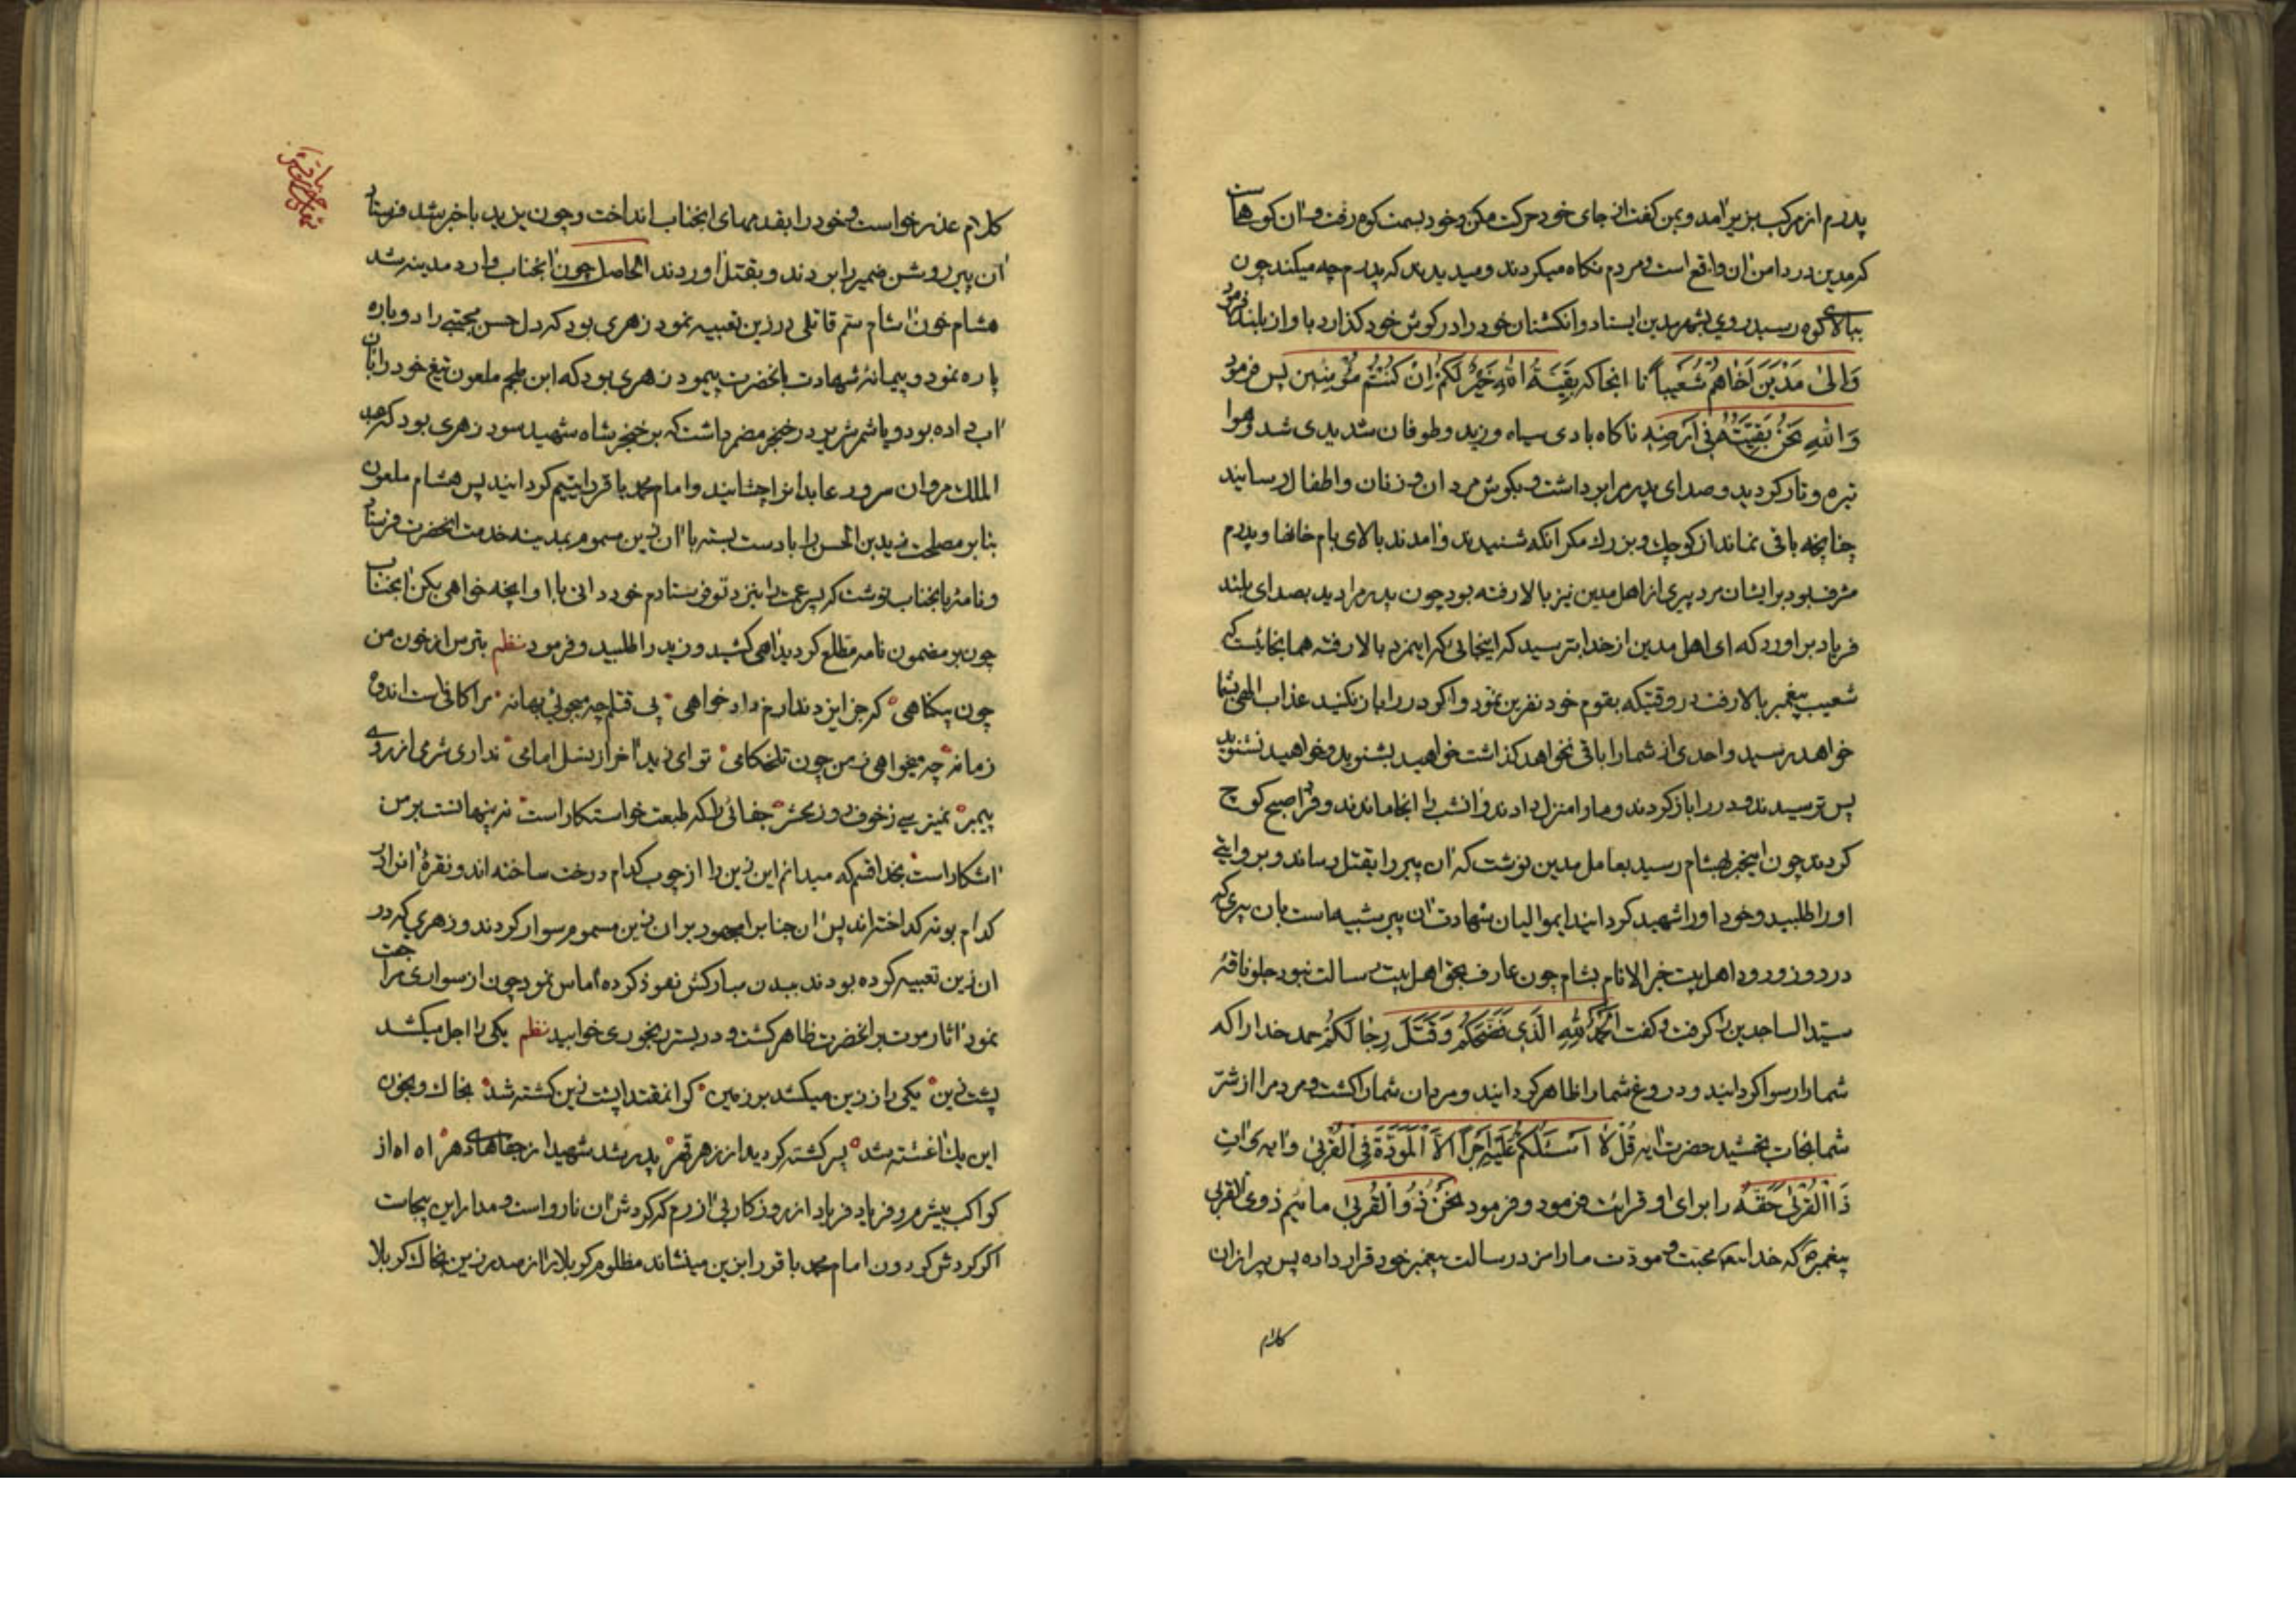 پدرم از مرکب بزیر آمد و بمن کفت از جای خود حرکت مکن و خود بسمت کوه رفت و آن کوهیست
که مدین در دامن آن واقع است و مردم نکاه میکردند و میدیدند که پدرم چه میکند چون
ببالای کوه رسید روی بشهر مدین ایستاد و انکشتان خود را در کوش خود کذارد باواز بلند فرمود
وَاِلیٰ مَدْیَنَ اَخَاهُمْ شُعَیْباً تا انجا که بَقِیَّةُ اللهِ خَیْرٌ لَکُمْ اِنْ کُنْتُمْ مُؤْمِنِینَ پس فرمود
وَاللهِ نَحْنُ بَقِیَّتُهُ فِی اَرْضِهِ ناکاه بادی سیاه وزید و طوفان شدیدی شد و هوا
تیره و تار کردید و صدای پدرم را برداشت و بکوش مردان و زنان و اطفال رسانید
چنانچه باقی نماند از کوچک و بزرک مکر انکه شنیدند و آمدند بالای بام خانها و پدرم
مشرف بود بر ایشان مرد پیری از اهل مدین نیز بالا رفته بود چون پدرم را دید بصدای بلند
فریاد براورد که ای اهل مدین از خدا بترسید که اینجائی که اینمرد بالا رفته همانجائیست که
شعیب پیغمبر بالا رفت در وقتیکه بقوم خود نفرین نمود و اکر در را باز نکنید عذاب الهی بشما
خواهد رسید و احدی از شما را باقی نخواهد کذاشت خواهید بشنوید و خواهید نشنوید
پس ترسیدند و در را باز کردند و ما را منزل دادند و انشب را انجا ماندند و فردا صبح کوچ
کردند چون اینخبر بهشام رسید بعامل مدین نوشت که آن پیر را بقتل رساند و بروایتی
او را طلبید و خود او را شهید کردانید ایموالیان شهادت آن پیر شبیه است بان پیری که
در روز ورود اهل بیت خیر الانام بشام چون عارف بحق اهل بیت رسالت نبود جلو ناقهٔ
سیّد الساجدین را کرفت و کفت اَلْحَمْدُ لِلّٰهِ الَّذِی فَضَحَکُمْ وَ قَتَلَ رِجَالَکُمْ حمد خدا را که
شما را رسوا کردانید و دروغ شما را ظاهر کردانید و مردان شما را کشت و مردم را از شرّ
شما نجات بخشید حضرت آیه قُلْ لٰا اَسْئَلُکُمْ عَلَیْهِ اَجْراً اِلاَّ الْمَوَدَّةَ فِی الْقُرْبیٰ و آیه وَ اٰتِ
ذَا الْقُرْبیٰ حَقَّهُ را برای او قرائت فرمود و فرمود نَحْنُ ذُوا الْقُرْبیٰ مائیم ذوی القربی
پیغمبر که خدا محبت و مودّت ما را مزد رسالت پیغمبر خود قرار داده پس پیر ازان
کلام
کلام عذر خواست و خود را بقدمهای انجناب انداخت و چون یزید با خبر شد فرستاد
آن پیر روشن ضمیر را بردند و بقتل آوردند الحاصل چون انجناب وارد مدینه شد
هشام خون اشام ستم قاتلی در زین تعبیه نمود زهری بود که دل حسن مجتبی را دوباره
پاره نمود و پیمانهٔ شهادت بانحضرت پیمود زهری بود که ابن ملجم ملعون تیغ خود را بان
آب داده بود و یا شمر شریر در خنجر مضمر داشت که بر خنجر شاه شهید سود زهری بود که عبد
الملک مروان سرور عابدانرا چشانید و امام محمد باقر را یتیم کردانید پس هشام ملعون
بنا بر مصلحت زید بن الحسن را با دست بسته با آن زین مسموم بمدینه خدمت انحضرت فرستاد
و نامهٔ بانجناب نوشت که پسر عمت را بنزد تو فرستادم خود دانی با او انچه خواهی بکن انجناب
چون بر مضمون نامه مطلع کردید آهی کشید و زید را طلبید و فرمود نظم بترس از خون من
چون بیکناهی که جز ایزد ندارم داد خواهی پی قتلم چه میجوئی بهانه مرا کافیست اندوه
زمانه چه میخواهی ز من چون تلخکامی تو ای زید آخر از نسل امامی نداری شرمی از روی
پیمبر نمیترسی ز خوف روز محشر جفائی را که طبعت خواستکار است نه پنهانست بر من
آشکار است بخدا قسم که میدانم این زین را از چوب کدام درخت ساخته اند و نقرهٔ آنرا در
کدام بوته کداخته اند پس آن جناب را مجبور بر ان زین مسموم سوار کردند و زهری که در
ان زین تعبیه کرده بودند ببدن مبارکش نفوذ کرده آماس نمود چون از سواری مراجعت
نمود آثار موت بر انحضرت ظاهر کشت و در بستر رنجوری خوابید نظم یکی را اجل میکشد
پشت زین یکی را ز زین میکشد بر زمین کر انمقتدا پشت زین کشته شد بخاک و بخون
این یک آغشته شد پسر کشته کردید از زهر قهر پدر شد شهید از جفاهای دهر اه اه از
کواکب بیشمر و فریاد فریاد از روزکار بی آزرم که کردش آن نارواست و مدار این بیجاست
اکر کردش کردون امام محمد باقر را بزین مینشاند مظلوم کربلا را از صدر زین بخاک کربلا